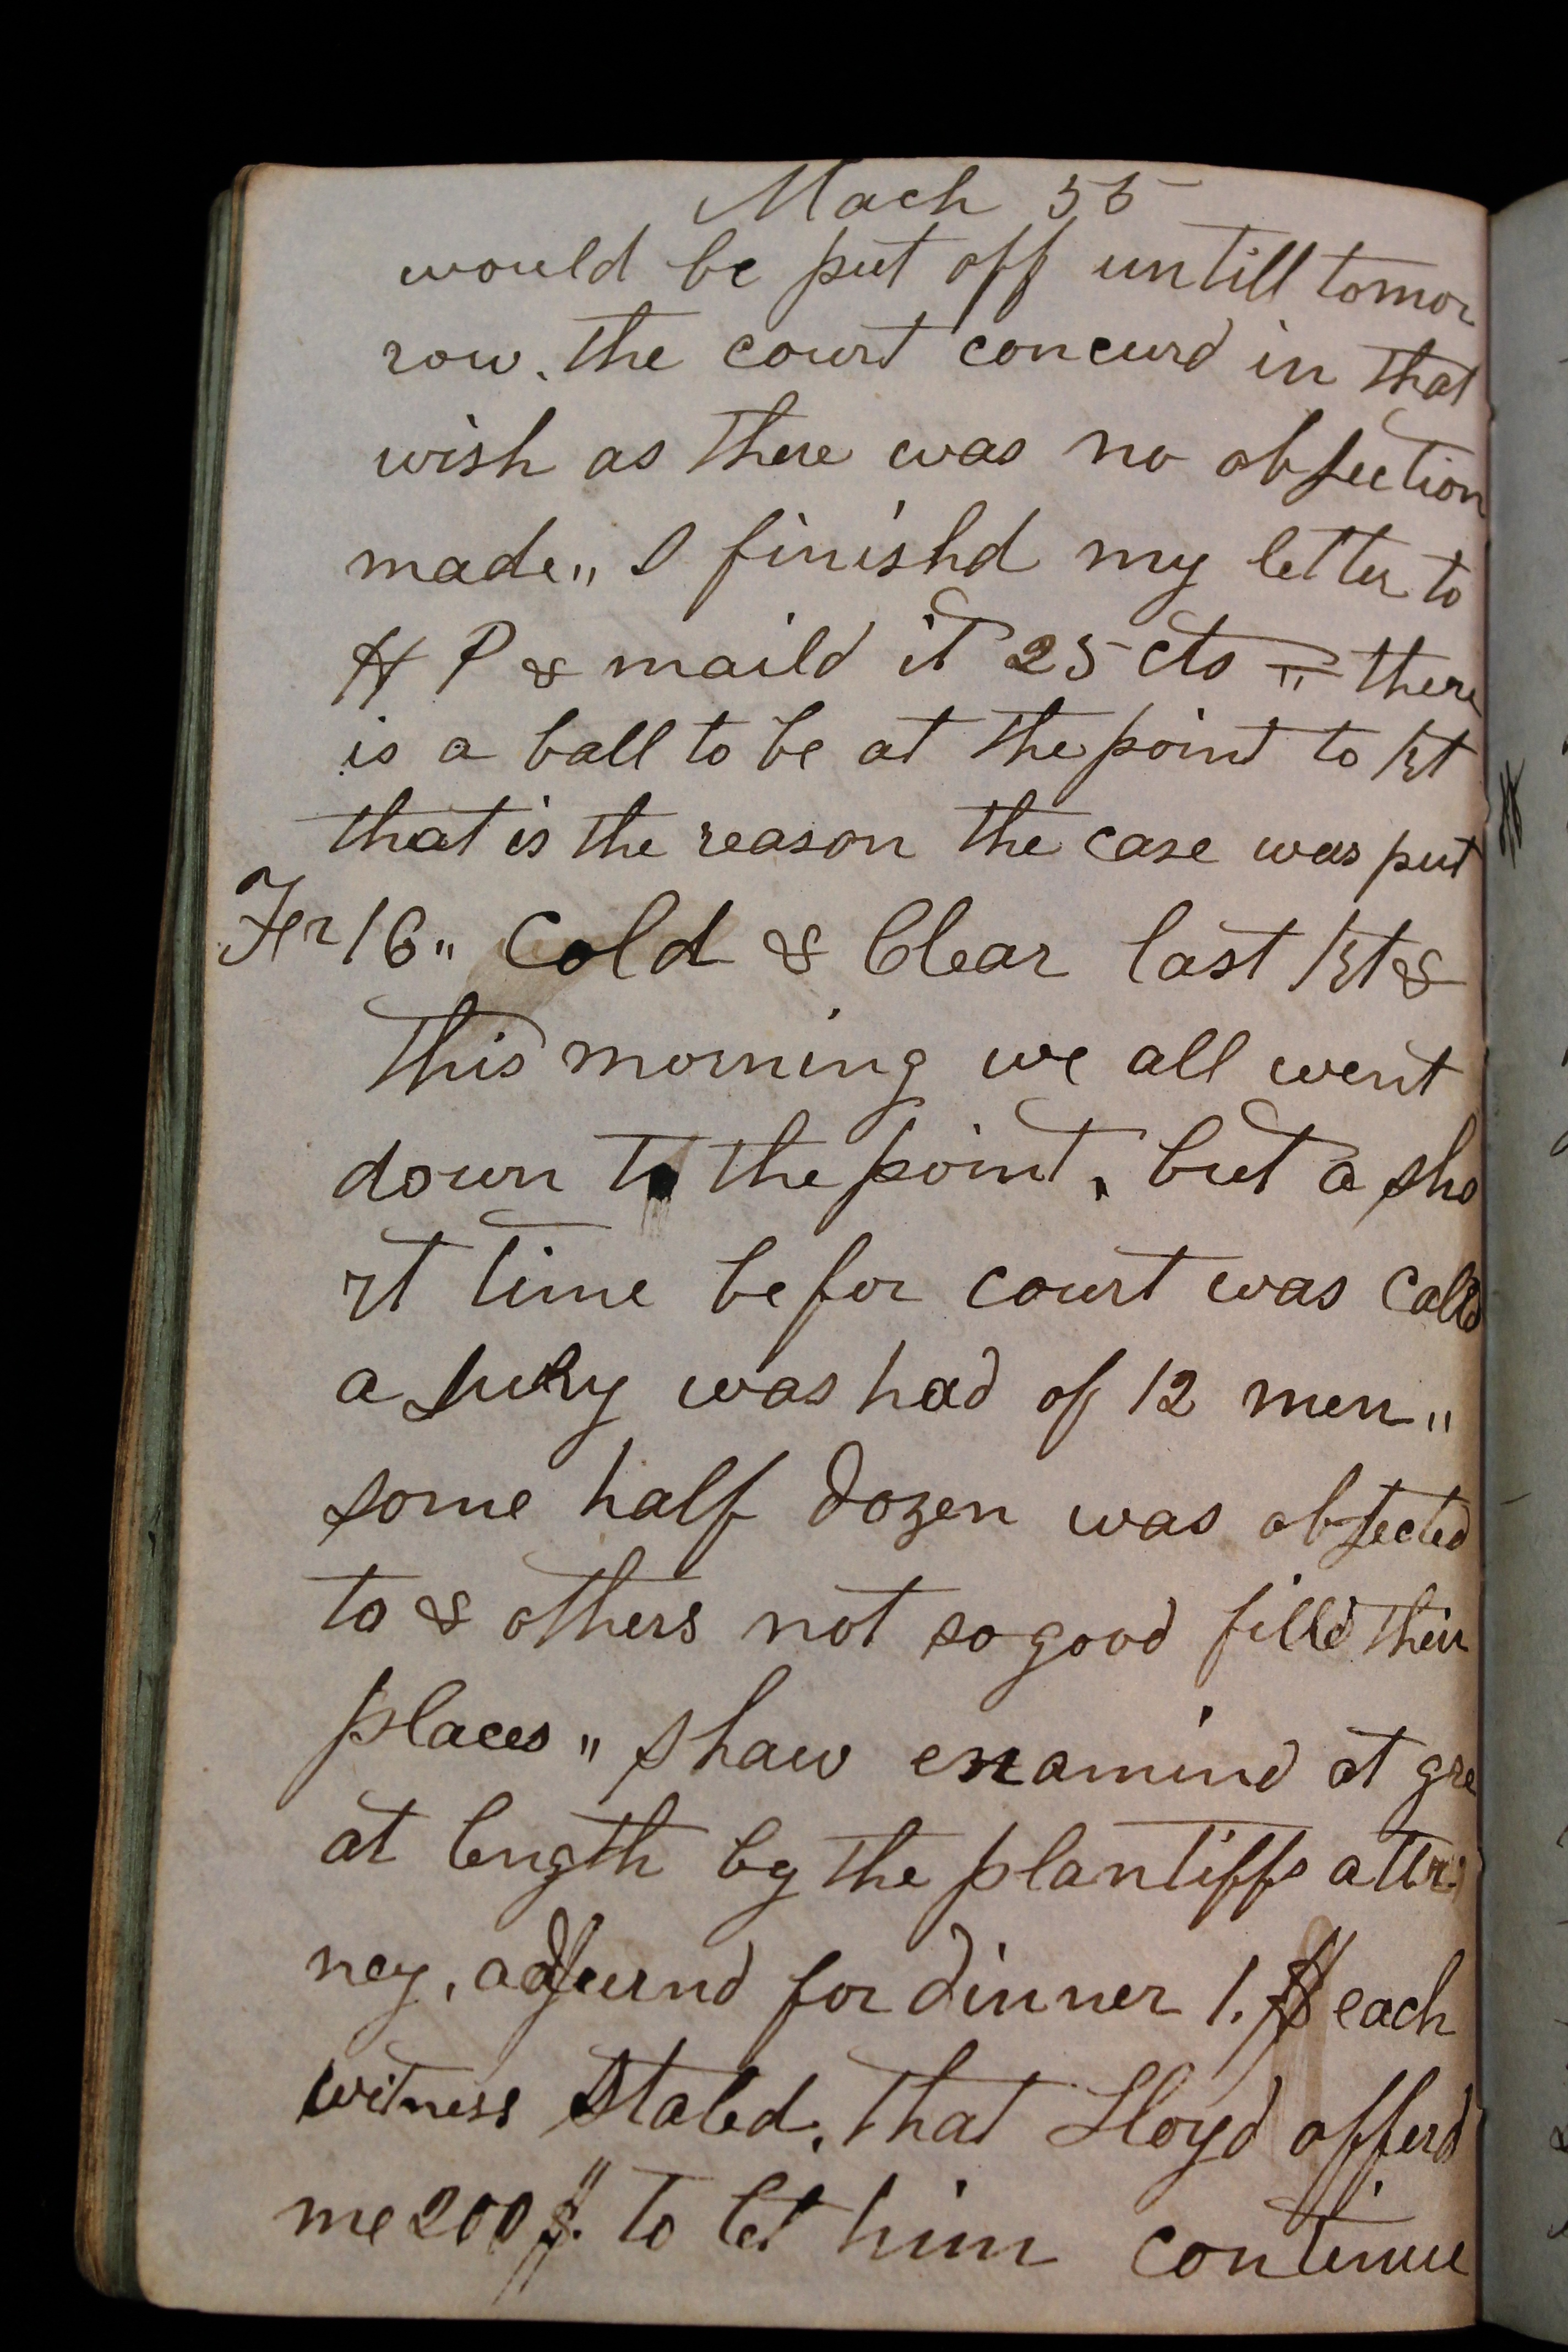 Mach 55
would be put off untill tomor
row. the court concurd in that
wish as there was no objection
made,, I finishd my letter to
H P & maild it 25 cts = there
is a ball to be at the point to Nt
that is the reason the case was put
Fr 16,, Cold & Clear last Nt &
this morning we all went
down to the point, but a sho
rt time befor court was calld
a Jury was had of 12 men,,
some half dozen was objected
to & others not so good filld their
places,, Shaw examind at gre
at length by the plantiffs attr
ney, adjurnd for dinner 1.$ each
witness stated, that Lloyd offerd
me 200$. to let him continue